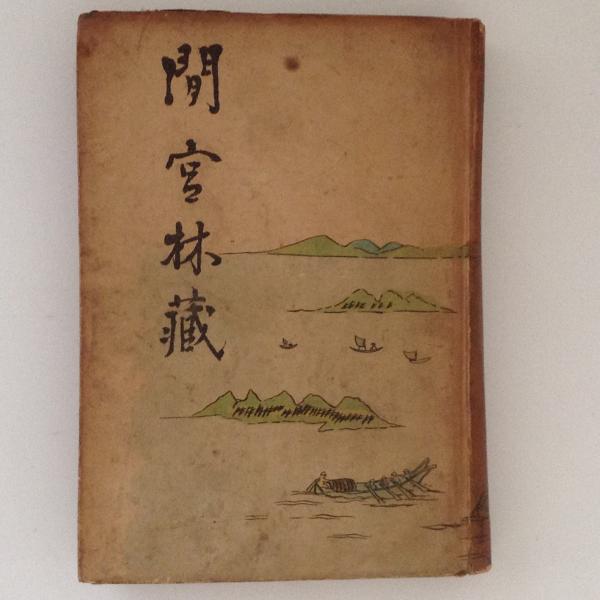 間宮林藏